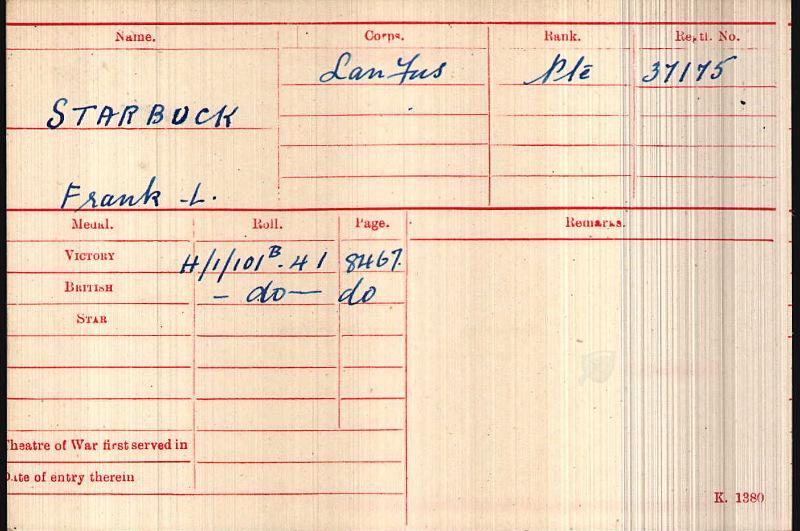 Name. Corps. Rank. Regtl. No.
Lan Fus Pte 37175
STARBUCK
Frank L.
Medal. Roll. Page. Remarks.
VICTORY H/1/101B. 41 8467.
BRITISH - do - do
STAR
Theatre of War first served in
Date of entry therein
K. 1380